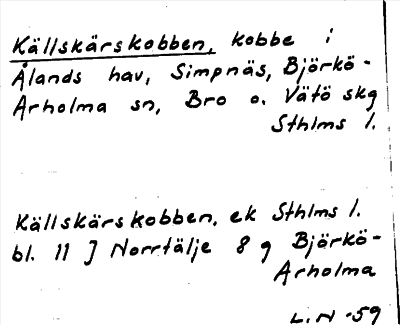 Källskärskobben, kobbe i
Ålands hav, Simpnäs, Björkö-
Arholma sn, Bro o. Vätö skg
Sthlms l.
Källskärskobben. ek Sthlms l.
bl. 11 J Norrtälje 8 g Björkö-
Arholma
L.N -59